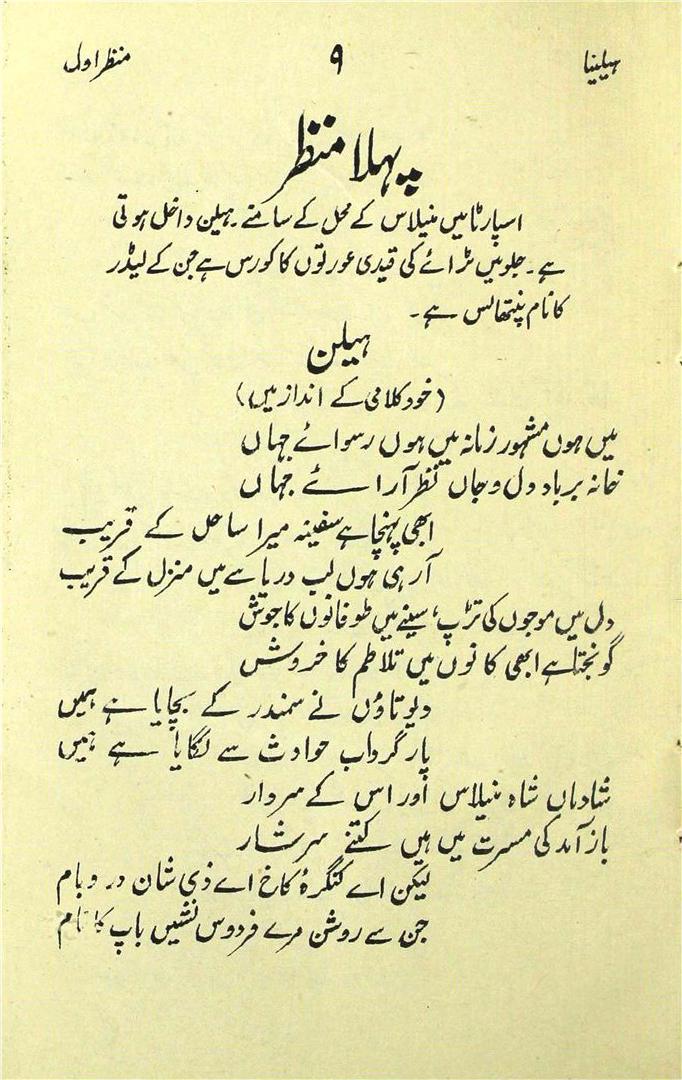 ہیلینا ۹ منظر اول
پہلا منظر
اسپارٹا میں منیلاس کے محل کے سامنے ۔ ہیلن داخل ہوتی
ہے ۔ جلو میں ٹرائے کی قیدی عورتوں کا کورس ہے جن کے لیڈر
کا نام پنتھالس ہے ۔
ہیلن
(خود کلامی کے انداز میں)
میں ہوں مشہور زمانہ میں ہوں رسوائے جہاں
خانہ برباد دل و جاں نظر آرائے جہاں
ابھی پہنچا ہے سفینہ میرا ساحل کے قریب
آ رہی ہوں لب دریا سے میں منزل کے قریب
دل میں موجوں کی تڑپ، سینے میں طوفانوں کا جوش
گونجتا ہے ابھی کانوں میں تلاطم کا خروش
دیوتاؤں نے سمندر کے بچایا ہے ہمیں
پار گرداب حوادث سے لگایا ہے ہمیں
شادماں شاہ منیلاس اور اس کے سردار
باز آمد کی مسرت میں ہیں کتنے سرشار
لیکن اے کنگرۂ کاخ اے ذی شان در و بام
جن سے روشن مرے فردوس نشیں باپ کا نام